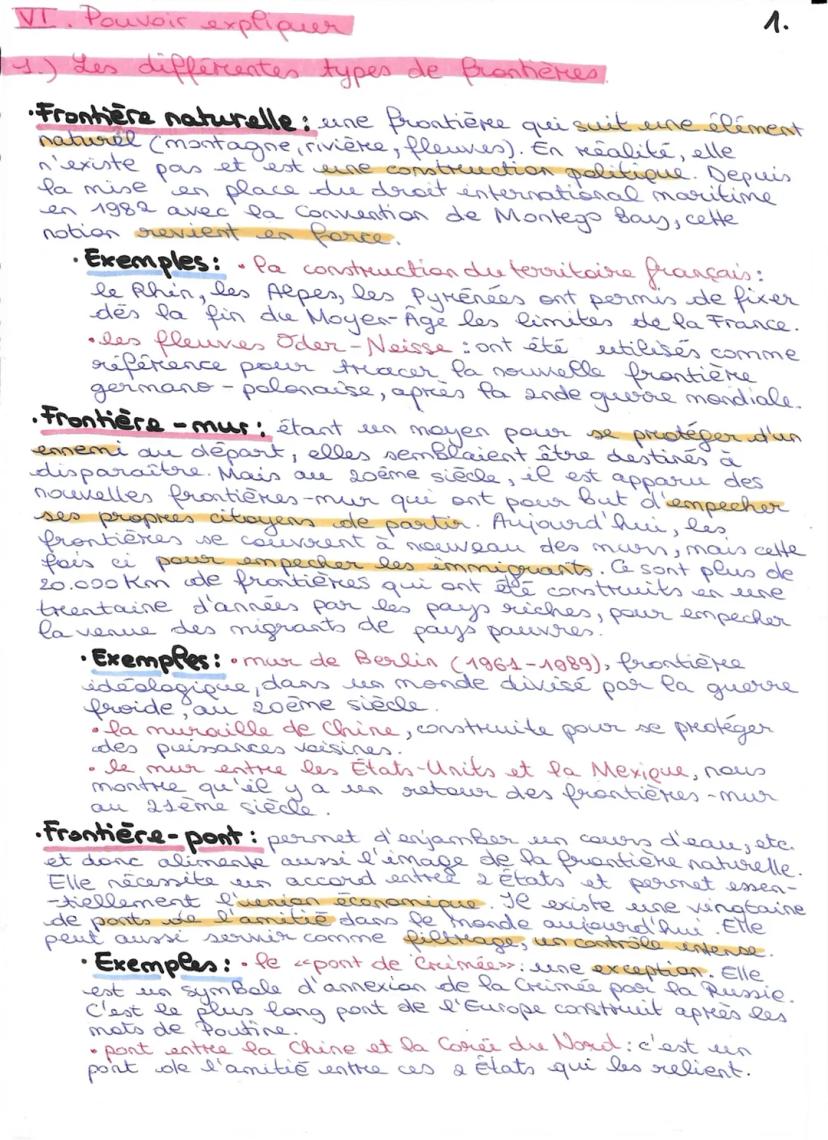 VI. Pouvoir expliquer
1.
1.) Les différentes types de frontières
• Frontière naturelle : une frontière qui suit une élément
naturel (montagne, rivière, fleuves). En réalité, elle
n'existe pas et est une construction politique. Depuis
la mise en place du droit international maritime
en 1982 avec la Convention de Montego Bay, cette
notion revient en force.
• Exemples : • la construction du territoire français :
le Rhin, les Alpes, les Pyrénées ont permis de fixer
dès la fin du Moyen-Âge les limites de la France.
• les fleuves Oder-Neisse : ont été utilisés comme
référence pour tracer la nouvelle frontière
germano-polonaise, après la 2nde guerre mondiale.
• Frontière-mur : étant un moyen pour se protéger d'un
ennemi au départ, elles semblaient être destinés à
disparaître. Mais au 20ème siècle, il est apparu des
nouvelles frontières-mur qui ont pour but d'empecher
ses propres citoyens de partir. Aujourd'hui, les
frontières se couvrent à nouveau des murs, mais cette
fois ci pour empecher les immigrants. Ce sont plus de
20.000 Km de frontières qui ont été construits en une
trentaine d'années par les pays riches, pour empecher
la venue des migrants de pays pauvres.
• Exemples : • mur de Berlin (1961-1989), frontière
idéologique, dans un monde divisé par la guerre
froide, au 20ème siècle.
• la muraille de Chine, construite pour se protéger
des puissances voisines.
• le mur entre les États-Unis et la Mexique, nous
montre qu'il y a un retour des frontières-mur
au 21ème siècle.
• Frontière-pont : permet d'enjamber un cours d'eau, etc.
et donc alimente aussi l'image de la frontière naturelle.
Elle nécessite un accord entre 2 États et permet essen-
-tiellement l'union économique. Il existe une vingtaine
de ponts de l'amitié dans le monde aujourd'hui. Elle
peut aussi servir comme filtrage, un contrôle intense.
• Exemples : • le «pont de Crimée» : une exception. Elle
est un symbole d'annexion de la Crimée par la Russie.
C'est le plus long pont de l'Europe construit après les
mots de Poutine.
• pont entre la Chine et la Corée du Nord : c'est un
pont de l'amitié entre ces 2 États qui les relient.